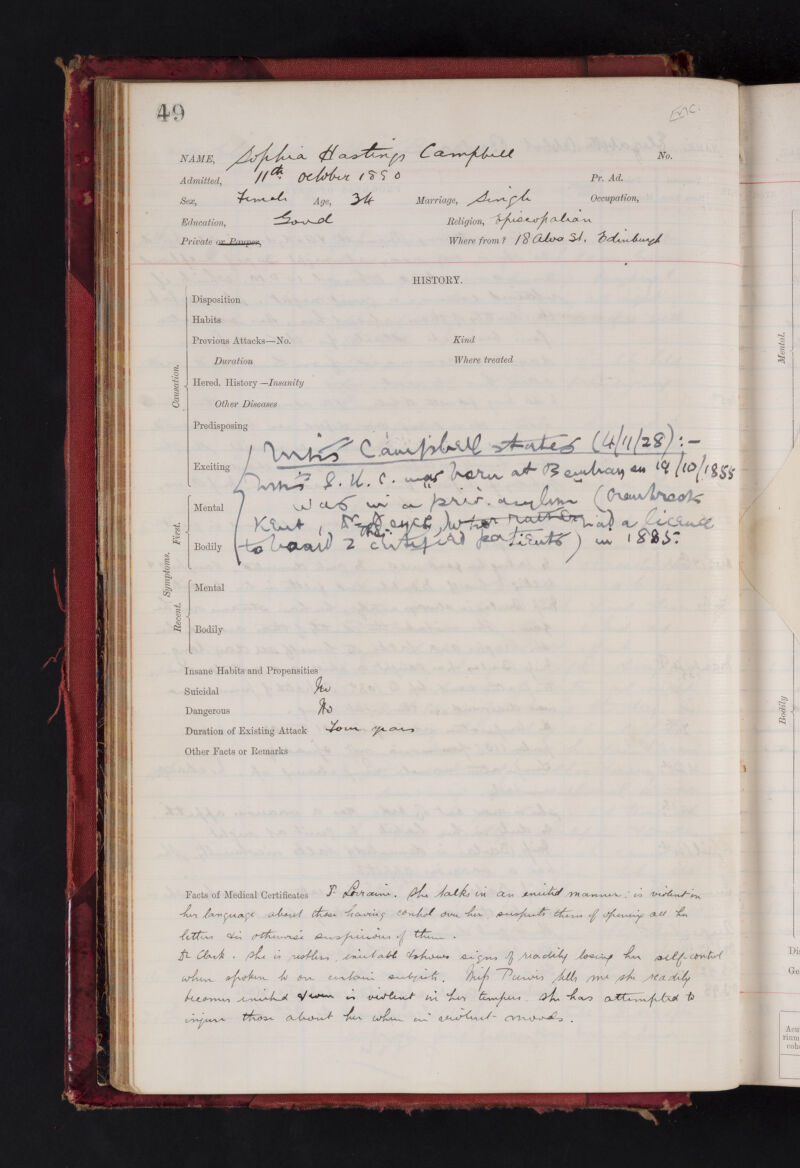 49
NAME, Sophia Hastings Campbell No.
Admitted, 11th October 1890 Pr. Ad.
Sex, Female Age, 34 Marriage, Single Occupation,
Education, Good Religion, Episcopalian
Private or Pauper, Where from? 18 Alva St. Edinburgh
HISTORY.
Causation.
Disposition
Habits
Previous Attacks—No. Kind
Duration Where treated
Hered. History—Insanity
Other Diseases
Predisposing
Miss Campbell states (4/11/28):—
Exciting
Miss S. H. C. was born at Bombay on 19/10/1855
Symptoms.
First.
Mental
was in a priv. asylum (Cranbrook
Kent, who rather had a licence
Bodily
to board 2 certified patients) in 1885.
Recent.
Mental
Bodily
Insane Habits and Propensities
Suicidal No
Dangerous No
Duration of Existing Attack Four years
Other Facts or Remarks
Facts of Medical Certificates Dr Lorraine. She talks in an excited manner: is violent in
her language about those having control over her, suspects them of opening all her
letters & is otherwise suspicious of them.
Dr Clark. She is restless, excitable & shows signs of readily losing her self control
when spoken to on certain subjects. Miss Purvis tells me she readily
becomes excited & even is violent in her temper. She has attempted to
injure those about her when in violent moods.
Mental.
Bodily